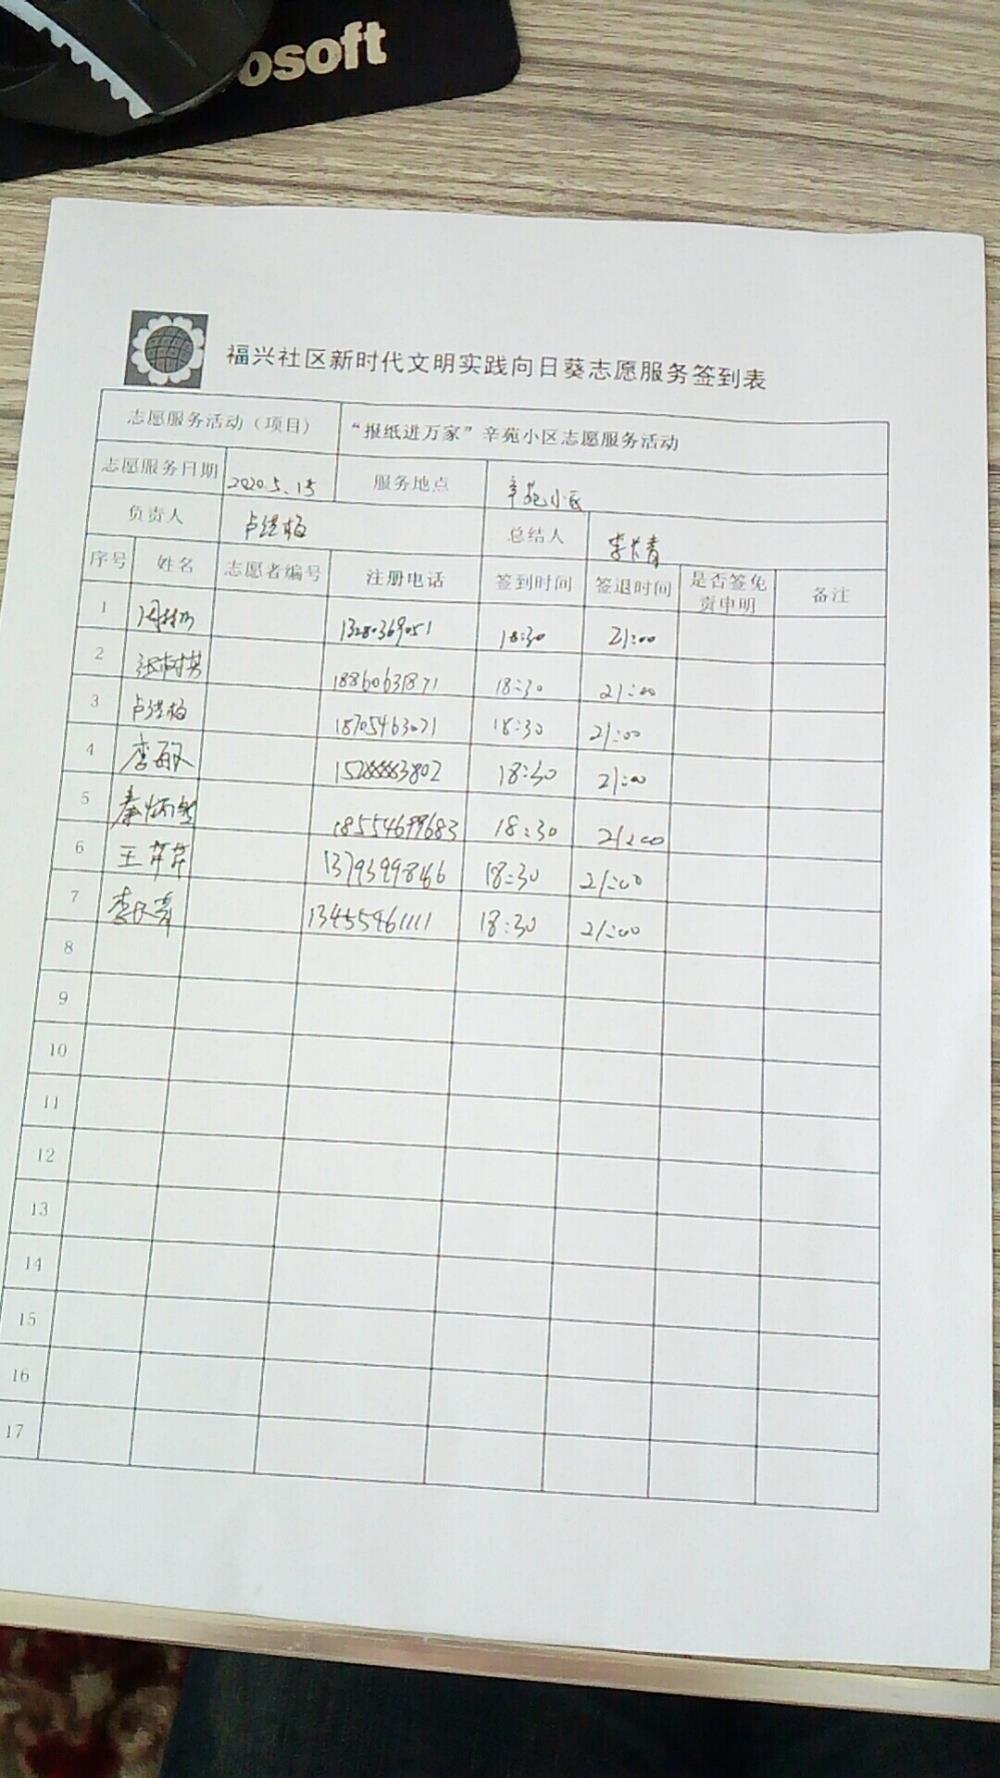 osoft
福兴社区新时代文明实践向日葵志愿服务签到表
志愿服务活动（项目） “报纸进万家”辛苑小区志愿服务活动
志愿服务日期 2020.5.15 服务地点 辛苑小区
负责人 总结人 李长青
序号 姓名 志愿者编号 注册电话 签到时间 签退时间 是否签免责申明 备注
1 13280369051 18:30 21:00
2 张树英 18860631871 18:30 21:00
3 18705463071 18:30 21:00
4 李敏 15288883802 18:30 21:00
5 18554699683 18:30 21:00
6 王芹芹 18:30 21:00
7 李长青 13455461111 18:30 21:00
8
9
10
11
12
13
14
15
16
17